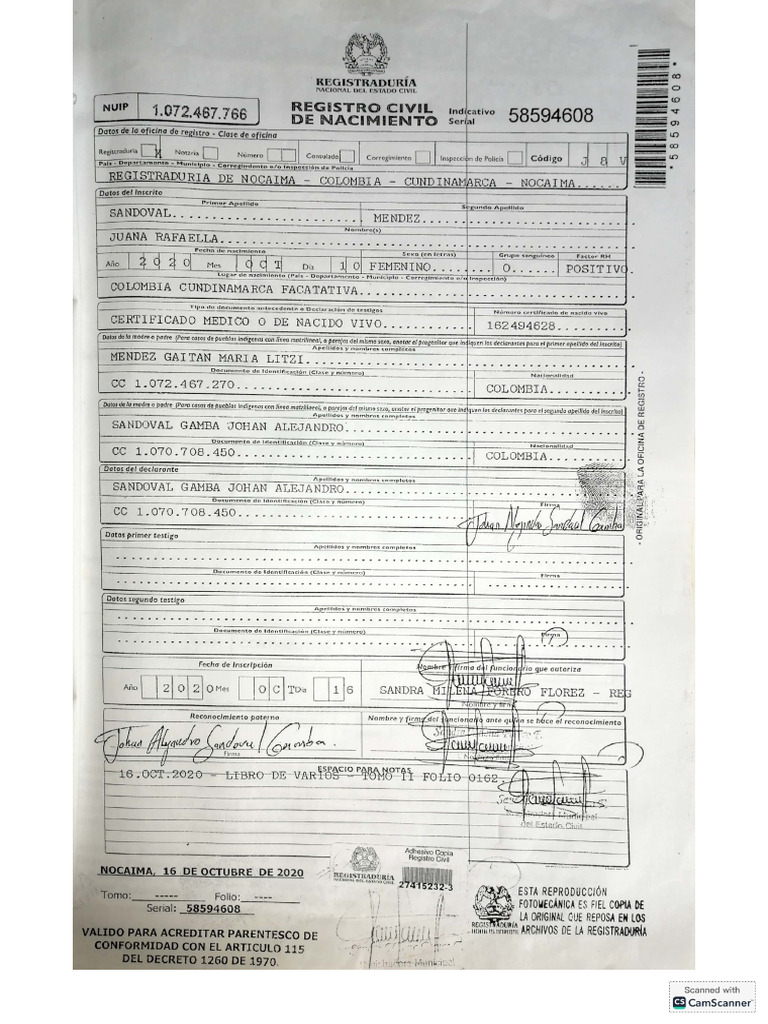 REGISTRADURÍA
NACIONAL DEL ESTADO CIVIL
NUIP 1.072.467.766
REGISTRO CIVIL
DE NACIMIENTO
Indicativo
Serial
58594608
*58594608*
Datos de la oficina de registro - Clase de oficina
Registraduría X Notaría Número Consulado Corregimiento Inspección de Policía Código J 8 V
País - Departamento - Municipio - Corregimiento o/e Inspección de Policía
REGISTRADURIA DE NOCAIMA - COLOMBIA - CUNDINAMARCA - NOCAIMA......
Datos del inscrito
Primer Apellido Segundo Apellido
SANDOVAL MENDEZ
Nombre(s)
JUANA RAFAELLA
Fecha de nacimiento Sexo (en letras) Grupo sanguíneo Factor RH
Año 2020 Mes OCT Día 10 FEMENINO O POSITIVO.
Lugar de nacimiento (País - Departamento - Municipio - Corregimiento o/e Inspección)
COLOMBIA CUNDINAMARCA FACATATIVA
Tipo de documento antecedente o Declaración de testigos Número certificado de nacido vivo
CERTIFICADO MEDICO O DE NACIDO VIVO 162494628
Datos de la madre o padre (Para casos de pueblos indígenas con línea matrilineal, o parejas del mismo sexo, anotar el progenitor que indiquen los declarantes para el primer apellido del inscrito)
Apellidos y nombres completos
MENDEZ GAITAN MARIA LITZI
Documento de Identificación (Clase y número) Nacionalidad
CC 1.072.467.270 COLOMBIA
Datos de la madre o padre (Para casos de pueblos indígenas con línea matrilineal, o parejas del mismo sexo, anotar el progenitor que indiquen los declarantes para el segundo apellido del inscrito)
Apellidos y nombres completos
SANDOVAL GAMBA JOHAN ALEJANDRO
Documento de Identificación (Clase y número) Nacionalidad
CC 1.070.708.450 COLOMBIA
Datos del declarante
Apellidos y nombres completos
SANDOVAL GAMBA JOHAN ALEJANDRO
Documento de Identificación (Clase y número) Firma
CC 1.070.708.450 Johan Alejandro Sandoval Gamba
- ORIGINAL PARA LA OFICINA DE REGISTRO -
Datos primer testigo
Apellidos y nombres completos
Documento de Identificación (Clase y número) Firma
Datos segundo testigo
Apellidos y nombres completos
Documento de Identificación (Clase y número) Firma
Fecha de Inscripción Nombre y firma del funcionario que autoriza
Año 2020 Mes OCT Día 16 SANDRA MILENA FORERO FLOREZ - REG
Nombre y firma
Reconocimiento paterno Nombre y firma del funcionario ante quien se hace el reconocimiento
Johan Alejandro Sandoval Gamba
Firma
ESPACIO PARA NOTAS
16.OCT.2020 - LIBRO DE VARIOS - TOMO II FOLIO 0162.
Municipal
del Estado Civil
NOCAIMA, 16 DE OCTUBRE DE 2020
Tomo: ----- Folio: ----
Serial: 58594608
VALIDO PARA ACREDITAR PARENTESCO DE
CONFORMIDAD CON EL ARTICULO 115
DEL DECRETO 1260 DE 1970.
REGISTRADURÍA
NACIONAL DEL ESTADO CIVIL
Adhesivo Copia
Registro Civil
27415232-3
Municipal
REGISTRADURÍA
ESTA REPRODUCCIÓN
FOTOMECÁNICA ES FIEL COPIA DE
LA ORIGINAL QUE REPOSA EN LOS
ARCHIVOS DE LA REGISTRADURÍA
Scanned with
CS CamScanner